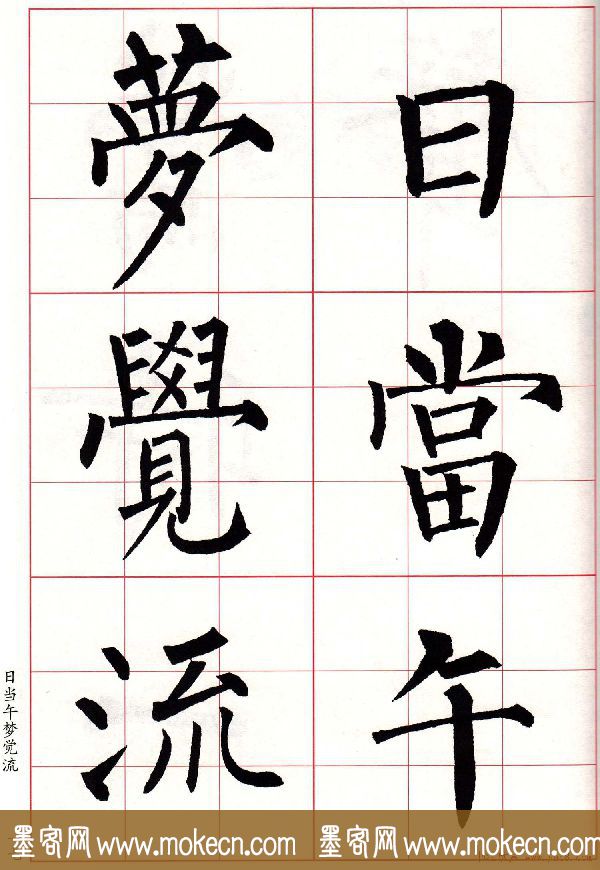 日當午
夢覺流
日当午梦觉流
墨客网 www.mokecn.com 墨客网 www.mokecn.com